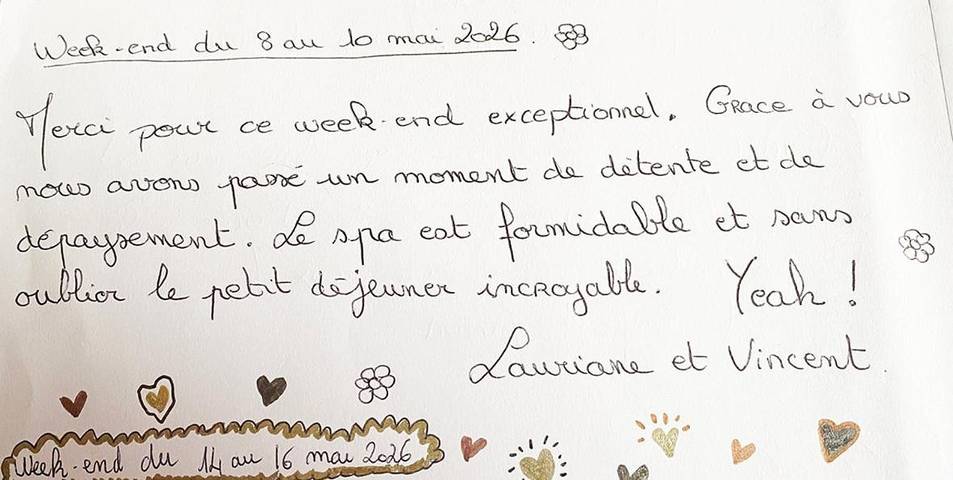 Week-end du 8 au 10 mai 2026.
Merci pour ce week-end exceptionnel. Grace à vous
nous avons passé un moment de détente et de
dépaysement. Le spa est formidable et sans
oublier le petit déjeuner incroyable. Yeah !
Lauriane et Vincent.
Week-end du 14 au 16 mai 2026